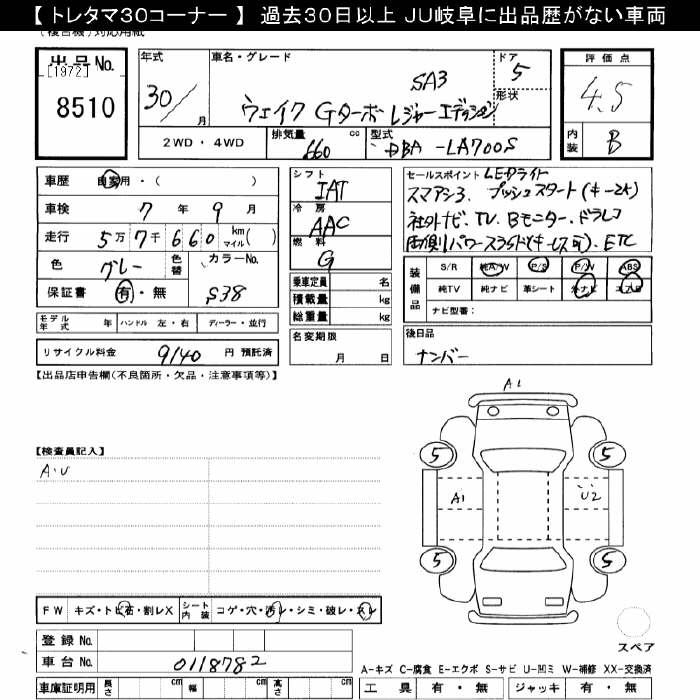 【 トレタマ30コーナー 】 過去30日以上 JU岐阜に出品歴がない車両
出品No.
[1972]
8510
年式
30/
月
車名・グレード
SA3
ウェイク Gターボ レジャーエディション
ドア
5
形状
評価点
4.5
内装
B
2WD・4WD
排気量
660 cc
型式
DBA-LA700S
車歴 自家用・( )
車検 7年 9月
走行 5万7千660 km マイル( )
色 グレー 色替 カラーNo.
保証書 有・無 S38
モデル年式 年 ハンドル 左・右 ディーラー・並行
リサイクル料金 9140 円 預託済
シフト
IAT
冷房
AAC
燃料
G
乗車定員 名
積載量 kg
総重量 kg
名変期限
月 日
セールスポイント LEDライト
スマアシ3. プッシュスタート(キー2ヶ)
社外ナビ. TV. Bモニター. ドラレコ
両側パワースライド(キーレス可). ETC
装備品
S/R 純A/W P/S P/W ABS
純TV 純ナビ 革シート 外ナビ エアB
ナビ型番:
後日品
ナンバー
【出品店申告欄(不良箇所・欠品・注意事項等)】
【検査員記入】
A・U
A1
5
5
A1
U2
5
5
スペア
FW キズ・トビ石・割レX シート内装 コゲ・穴・汚レ・シミ・破レ・スレ
登録 No.
車台 No. 0118782
車庫証明用 長さ cm 幅 cm 高さ cm
A-キズ C-腐食 E-エクボ S-サビ U-凹ミ W-補修 XX-交換済
工具 有・無 ジャッキ 有・無